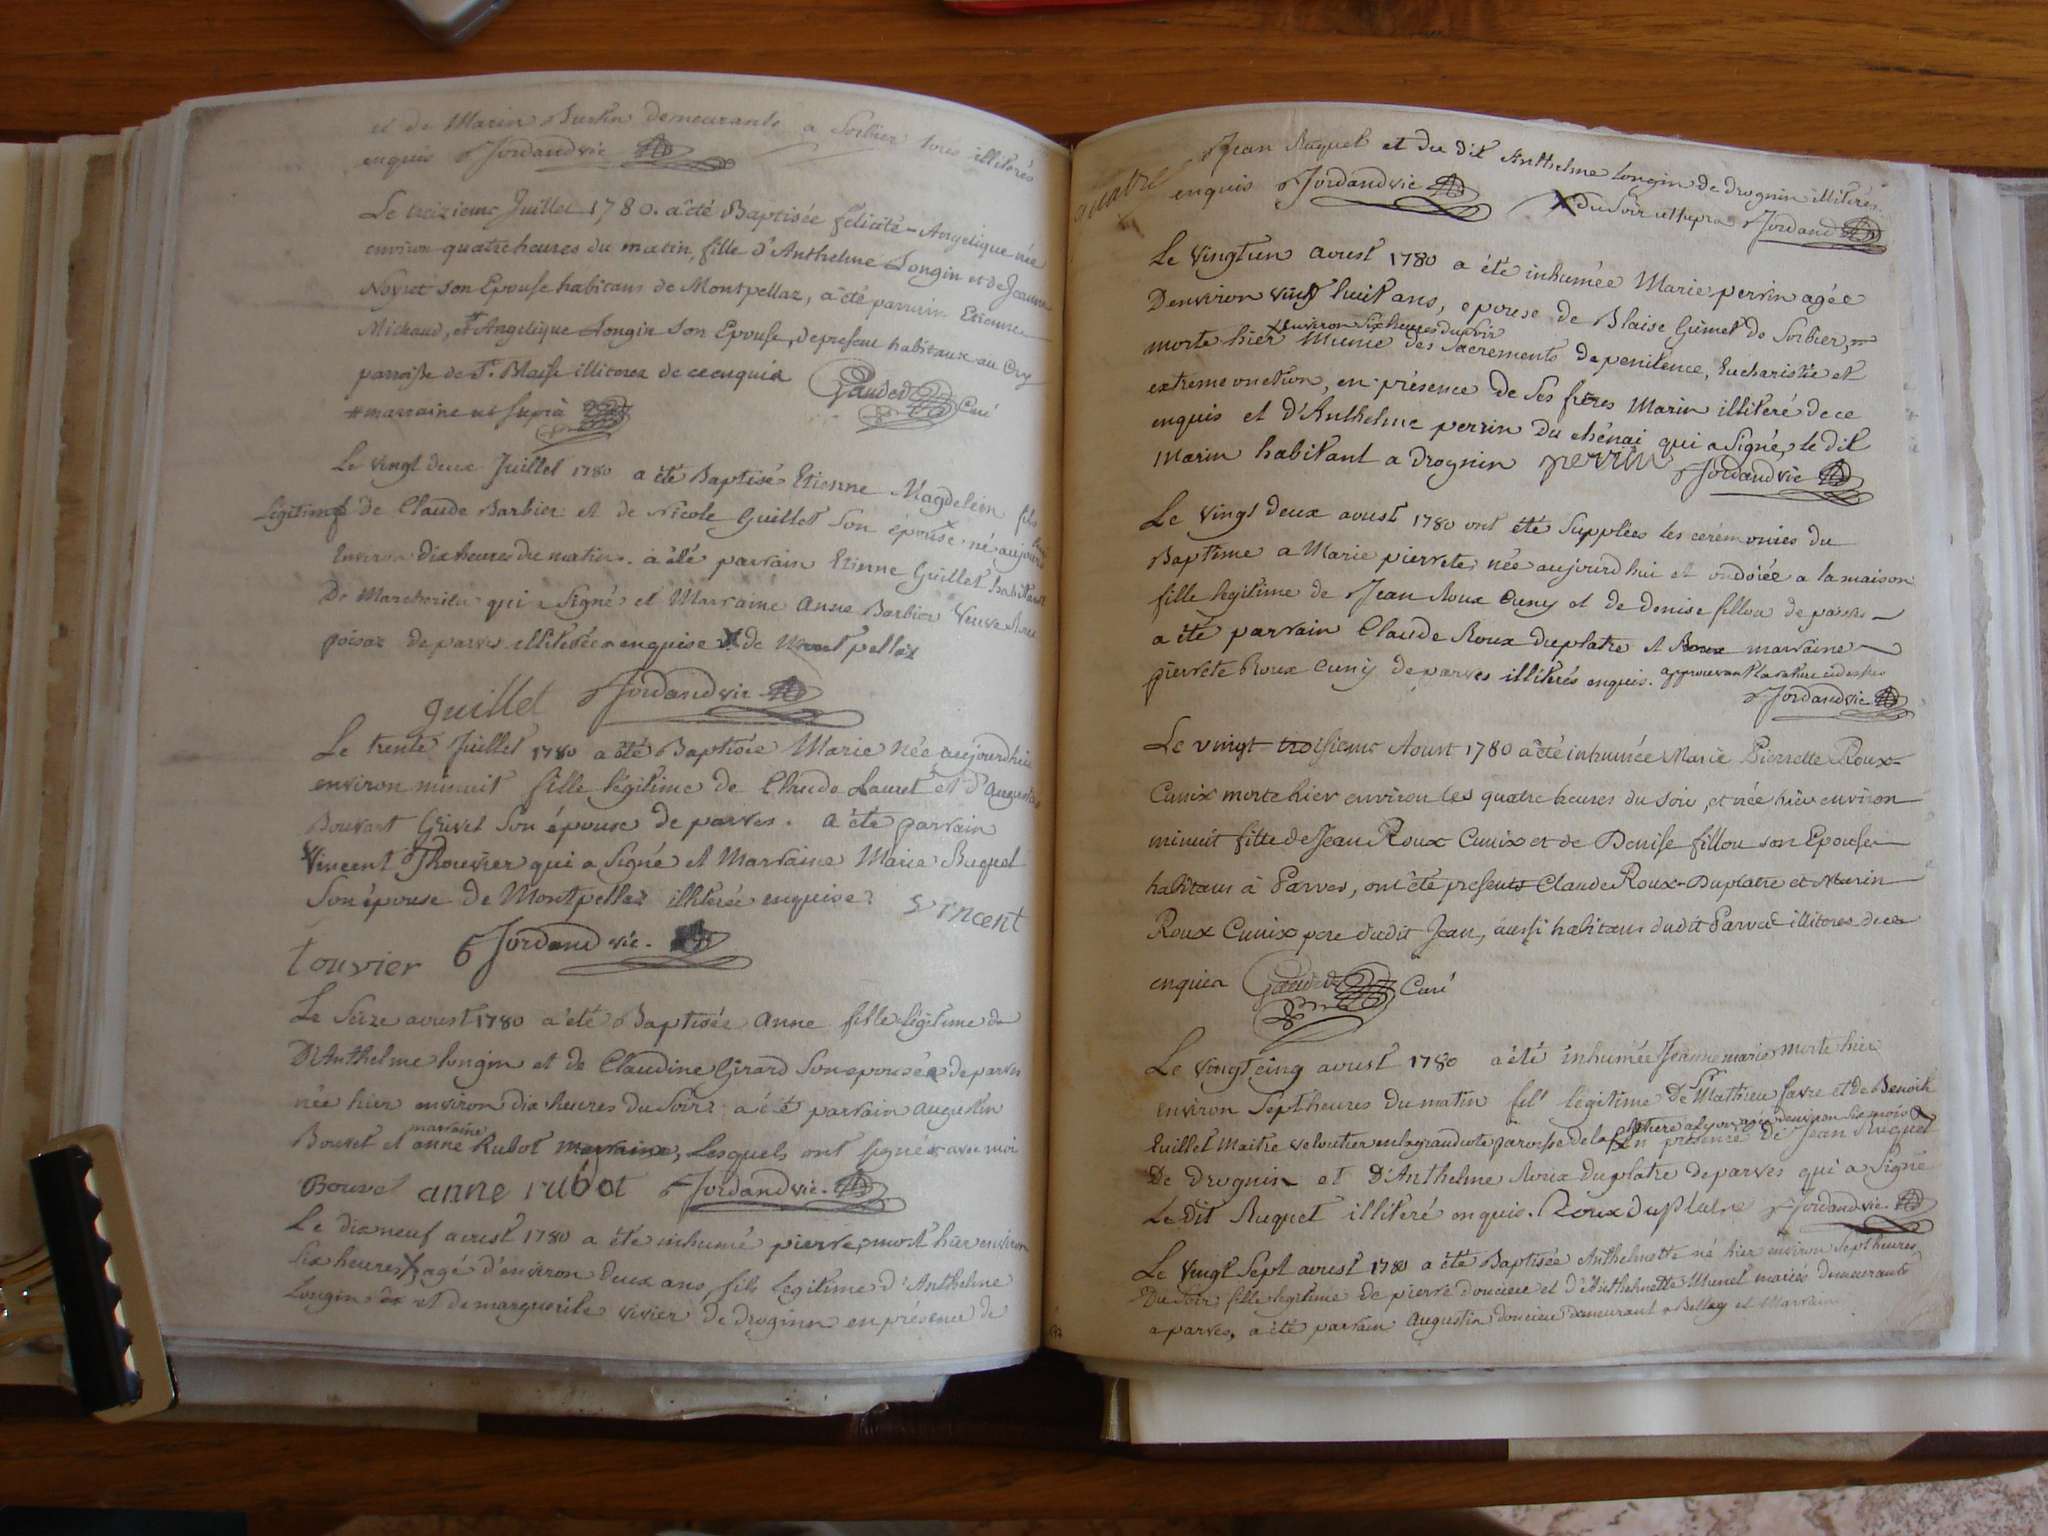 et de Marin Burtin demeurants a Sorbier tous illiterés
enquis Jordan vic
Le treizieme Juillet 1780. a été Baptisée félicité-Angelique née
environ quatre heures du matin, fille d'Anthelme Longin et de Jeanne
Noyret son Epouse habitans de Montpellaz, a été parrain Etienne
Michaud, et # Angelique Longin son Epouse, de present habitans au
parroisse de St. Blaise illiterez de ce enquis Gaudet Curé
# marraine ut suprà
Le vingt deux Juillet 1780 a été Baptisé Etienne Magdelein fils
légitime de Claude Barbier et de Nicole Guillet Son épouse né aujourd'hui
Environ dix heures du matin. a été parrain Etienne Guillet habitant
De Marcherieu qui a Signé et Marraine Anne Barbier Veuve Roux
de parves illiterée enquise de Montpellaz
guillet Jordan vic
Le trente Juillet 1780 a été Baptisée Marie Née aujourdhui
environ minuit fille légitime de Claude Lauret et d'Augustine
Bouvart Grivet Son épouse de parves. a été parrain
Vincent Thouvier qui a Signé et Marraine Marie Buquet
Son épouse de Montpellaz illiterée enquise. Vincent
touvier Jordan vic.
Le Seize aoust 1780 a été Baptisée Anne fille légitime de
D'Anthelme longin et de Claudine Girard Son epouse de parves
née hier environ dix heures du Soir. a été parrain augustin
marraine
Bouvet et anne Rubot marraine, Lesquels ont signés avec moi
Bouvet anne rubot Jordan vic.
Le dix neuf aoust 1780 a été inhumé pierre, mort hier environ
Six heures X agé d'environ deux ans, fils legitime d'Anthelme
Longin et de marguerite vivier de drognin en présence de
quatre
Jean Ruquet et du dit Anthelme longin de drognin illiterés
enquis Jordan vic X du soir ut supra Jordan
Le Vingt un aoust 1780 a été inhumée Marie perrin agée
D'environ vingt huit ans, epouse de Blaise Guimet de Sorbier,
X environ six heures du soir
morte hier X Munie des Sacrements de penitence, Eucharistie et
extreme onction, en présence de Ses freres Marin illiteré de ce
enquis et d'Anthelme perrin Du chénai qui a Signé, le dit
Marin habitant a Drognin perrin Jordan vic
Le vingt deux aoust 1780 ont été Supplées les cérémonies du
Baptême a Marie pierrete, née aujourd hui et ondoiée a la maison
fille légitime de Jean Roux Cuny et de denise fillou de parves
a été parrain Claude Roux duplatre et Roux marraine
pierrete Roux Cuny de parves illiterés enquis. approuvant la rature cidessus
Jordan vic
Le vingt troisieme Aoust 1780 a été inhumée Marie Pierrette Roux-
Cunix morte hier environ les quatre heures du soir, et née hier environ
minuit fille de Jean Roux Cunix et de Denise fillou son Epouse
habitans à Parves, ont été presents Claude Roux-Duplatre et Marin
Roux Cunix pere dudit Jean, aussi habitans dudit Parves illiteres de ce
enquis Gaudet Curé
Le Vingt cinq aoust 1780 a été inhumée Jeanne marie morte hier
environ Sept heures du matin fille légitime de Mathieu favre et de Benoite
Guillet Maitre veloutier en la grand cote paroisse de la En présence de Jean Ruquet
De drognin et D'Anthelme Roux Duplatre de parves qui a Signé
Le Dit Ruquet illiteré enquis. Roux Duplatre Jordan vic.
Le Vingt Sept aoust 1780 a été Baptisée Anthelmette né hier environ Sept heures
Du Soir fille légitime de pierre doucieu et d'Anthelmette Munet mariés demeurants
a parves, a été parrain Augustin doucieu demeurant a Belley et Marraine